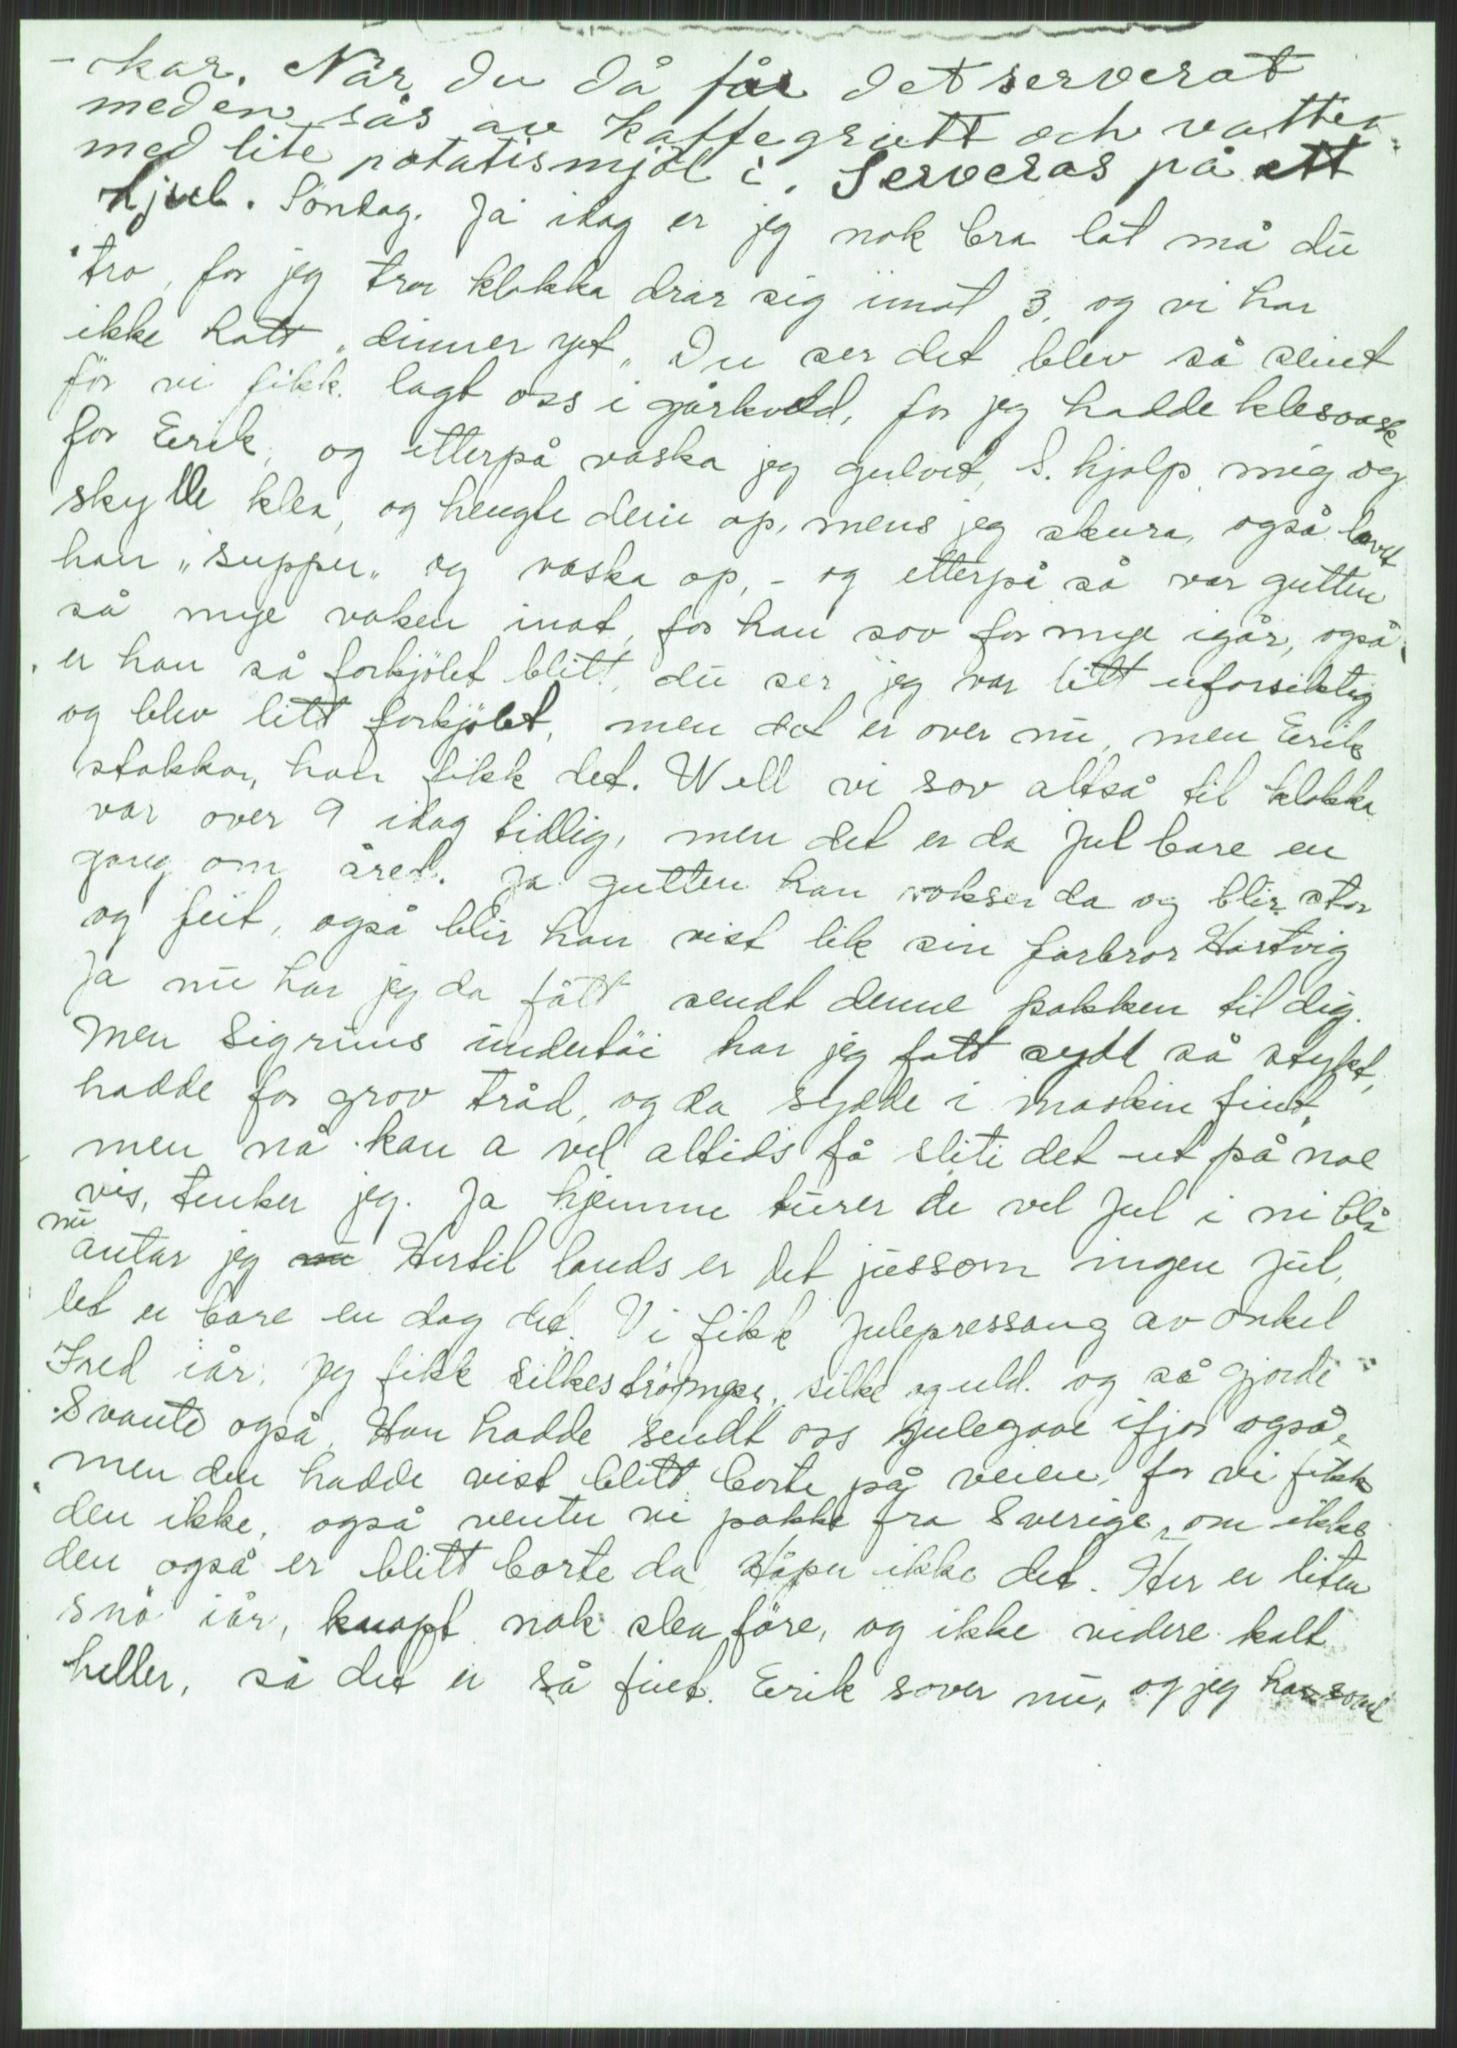 - kar. Når du då får det serverat
med en sås av kaffegrutt och vatten
med lite potatismjöl i. Serveras på ett
hjul. Söndag. Ja idag er jeg nok bra lat må du
tro, for jeg tror klokka drar sig imot 3, og vi har
ikke hatt "dinner yet" Du ser det blev så seint
för vi fikk lagt oss i går kveld, for jeg hadde klesvask
for Erik, og etterpå vaska jeg gulvet, S. hjalp mig og
skylle klea, og hengte dem op, mens jeg skura, også lavet
han "supper" og vaska op, - og etterpå så var gutten
så mye vaken inat, for han sov for mye igår, også
er han så forkjölet blitt, du ser jeg var litt uforsiktig
og blev litt forkjölet, men det er over nu, men Erik
stakkar, han fikk det. Well vi sov altså til klokka
var over 9 idag tidlig, men det er da Jul bare en
gang om året. Ja gutten han vokser da og blir stor
og feit, også blir han vist lik sin farbror Hartvig
Ja nu har jeg da fått sendt denne pakken til dig.
Men Sigruns undertöi har jeg fått sydd så stykt,
hadde for grov tråd, og da sydde i maskin fint,
men nå kan a vel altids få sliti det ut på noe
vis, tenker jeg. Ja hjemme turer de vel Jul i ni blå
nu
antar jeg Hertil lands er det jussom ingen Jul,
det er bare en dag det. Vi fikk Julepressang av onkel
Fred iår, Jeg fikk silkeströmper, silke og uld. og så gjorde
Svante også, Han hadde sendt oss julegave ifjor også,
men den hadde vist blitt borte på veien, for vi fikk
den ikke, også venter vi pakke fra Sverige, om ikke
den også er blitt borte da, Håper ikke det. Her er liten
snö iår, knapt nok sleaföre, og ikke videre kalt
heller, så det er så fint. Erik sover nu, og jeg har